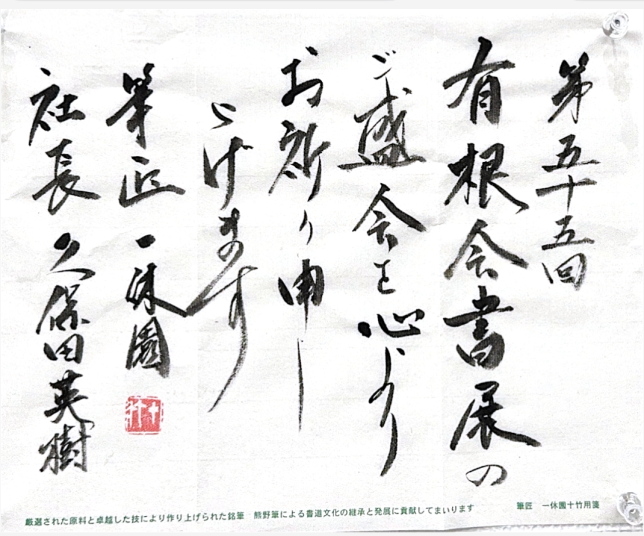 第五十五回
有根会書展の
ご盛会を心より
お祈り申し
上げます
筆匠 一休園
十竹
社長 久保田英樹
厳選された原料と卓越した技により作り上げられた銘筆　熊野筆による書道文化の継承と発展に貢献してまいります　筆匠　一休園十竹用箋